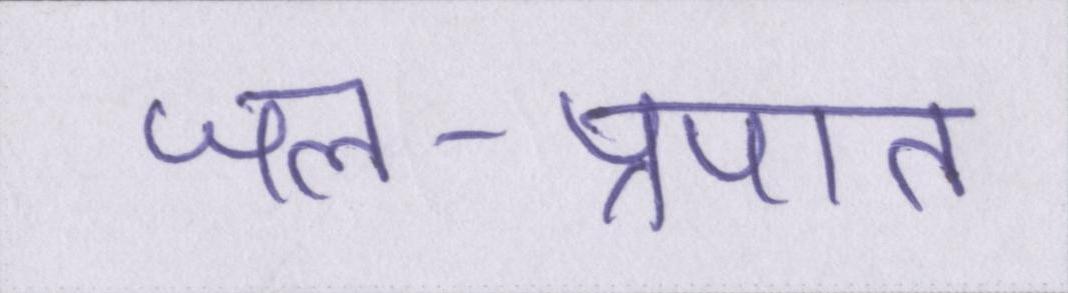 जल-प्रपात